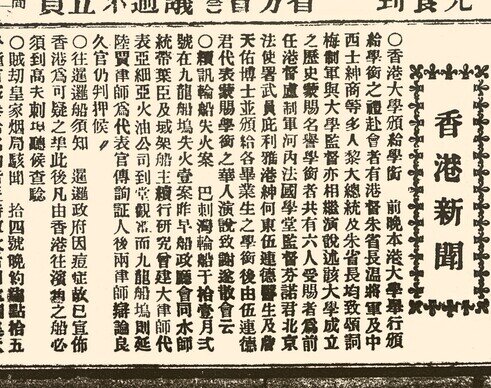 香港新聞
○香港大學頒給學銜 前晚本港大學舉行頒
給學銜之禮赴會者有港督朱省長溫將軍及中
西士紳商等多人黎大總統及朱省長均致頌詞
梅制軍與大學監督亦相繼演說述該大學成立
之歷史蒙賜名譽學銜者共有六人受賜者為前
任港督盧制軍河內法國學堂監督芬諾君北京
法使署武員庇利雅港紳何東伍連德醫生及詹
天佑博士並頒給各畢業生之學銜後由伍連德
君代表蒙賜學銜之華人演說致謝遂散會云
○續訊輪船失火案 巴剌灣輪船于拾壹月弍
號在九龍船塢失火壹案昨早船政廳會同水師
統帶葉臣及域架船主續行研究曾建大律師代
表亞細亞火油公司到堂觀審而九龍船塢則延
陸賈律師為代表官傳詢証人後兩律師辯論良
久官仍判押候
○往暹邏船須知 暹邏政府因痘症故已宣佈
香港為可疑之埠此後凡由香港往濱角之船必
須到高夫刺埗聽候查騐
○賊刼皇家烟局駭聞 拾四號晚約鐘點拾五